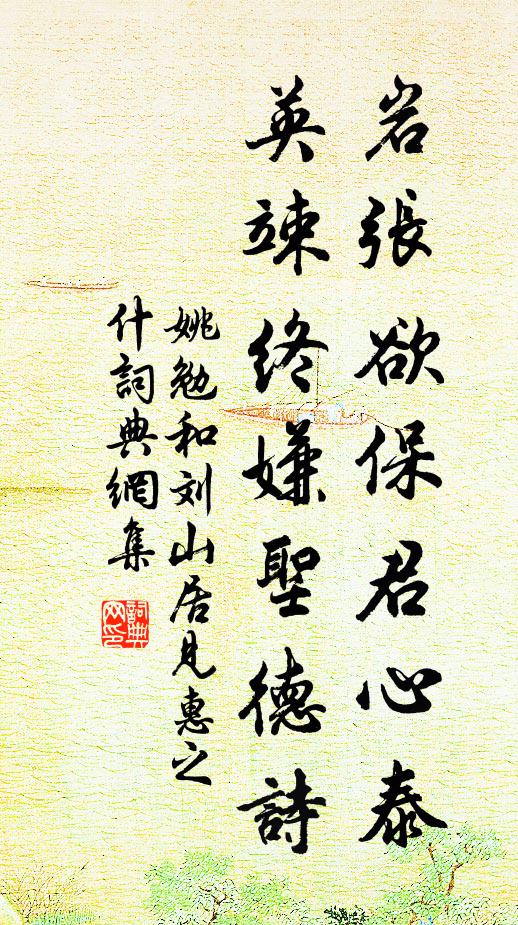 岩張欲保君心泰
英竦終嫌聖德詩
姚勉和刘山居見惠之
什詞典網集
詞典网印